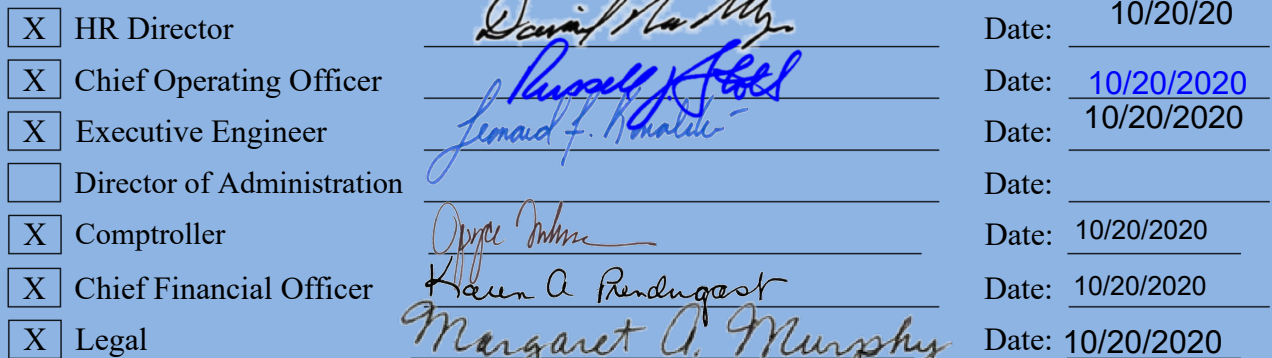 X HR Director Date: 10/20/20
X Chief Operating Officer Russell J. Date: 10/20/2020
X Executive Engineer Leonard F. Date: 10/20/2020
Director of Administration Date:
X Comptroller Joyce Date: 10/20/2020
X Chief Financial Officer Karen A Prendergast Date: 10/20/2020
X Legal Margaret A. Murphy Date: 10/20/2020